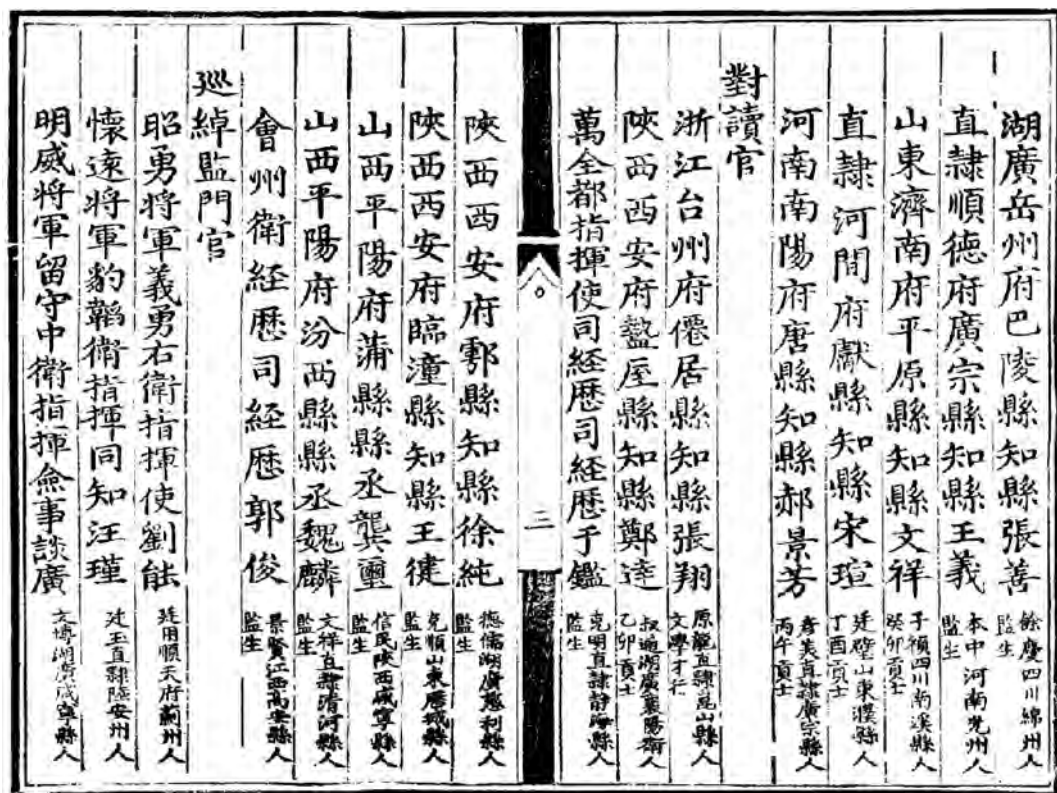 湖廣岳州府巴陵縣知縣張善 餘慶四川綿州人監生
直隸順德府廣宗縣知縣王義 本中河南光州人監生
山東濟南府平原縣知縣文祥 子禎四川南溪縣人癸卯貢士
直隸河間府獻縣知縣宋瑄 廷璧山東濮縣人丁酉貢士
河南南陽府唐縣知縣郝景芳 彥美直隸廣宗縣人丙午貢士
對讀官
浙江台州府僊居縣知縣張翔 原龍直隸崑山縣人文學才仁
陝西西安府盩厔縣知縣鄭達 叔通湖廣襄陽衛人乙卯貢士
萬全都指揮使司經歷司經歷于鑑 克明直隸靜海縣人監生
三
陝西西安府鄠縣知縣徐純 德儒湖廣慈利縣人監生
陝西西安府臨潼縣知縣王健 克順山東歷城縣人監生
山西平陽府蒲縣縣丞龔璽 信民陝西咸寧縣人監生
山西平陽府汾西縣縣丞魏麟 文祥直隸清河縣人監生
會州衛經歷司經歷郭俊 景賢江西高安縣人監生
巡綽監門官
昭勇將軍義勇右衛指揮使劉能 廷用順天府薊州人
懷遠將軍豹韜衛指揮同知汪瑾 廷玉直隸陸安州人
明威將軍留守中衛指揮僉事談廣 文博湖廣咸寧縣人